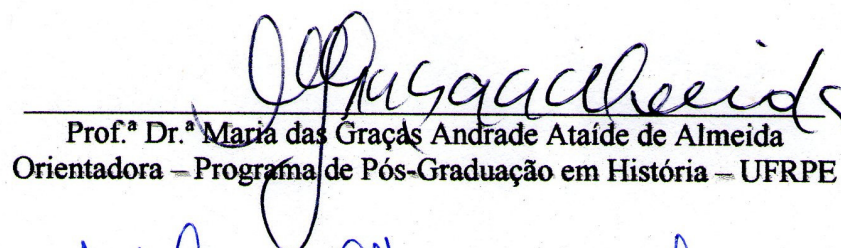 Prof.ª Dr.ª Maria das Graças Andrade Ataíde de Almeida
Orientadora – Programa de Pós-Graduação em História – UFRPE